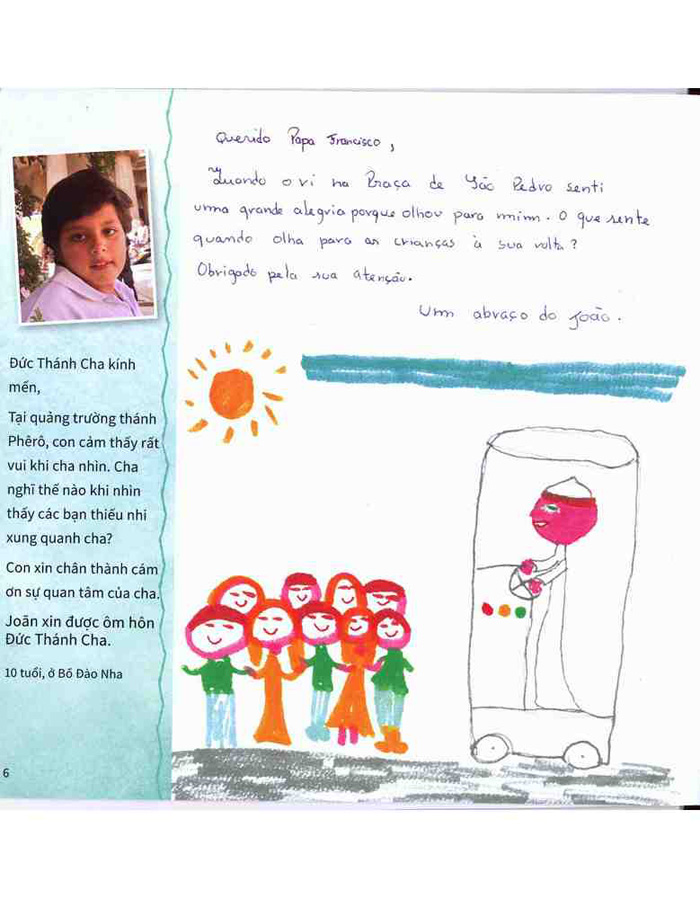 Querido Papa Francisco,
Quando o vi na Praça de São Pedro senti
uma grande alegria porque olhou para mim. O que sente
quando olha para as crianças à sua volta?
Obrigado pela sua atenção.
Um abraço do João.
Đức Thánh Cha kính
mến,
Tại quảng trường thánh
Phêrô, con cảm thấy rất
vui khi cha nhìn. Cha
nghĩ thế nào khi nhìn
thấy các bạn thiếu nhi
xung quanh cha?
Con xin chân thành cám
ơn sự quan tâm của cha.
Joãn xin được ôm hôn
Đức Thánh Cha.
10 tuổi, ở Bồ Đào Nha
6